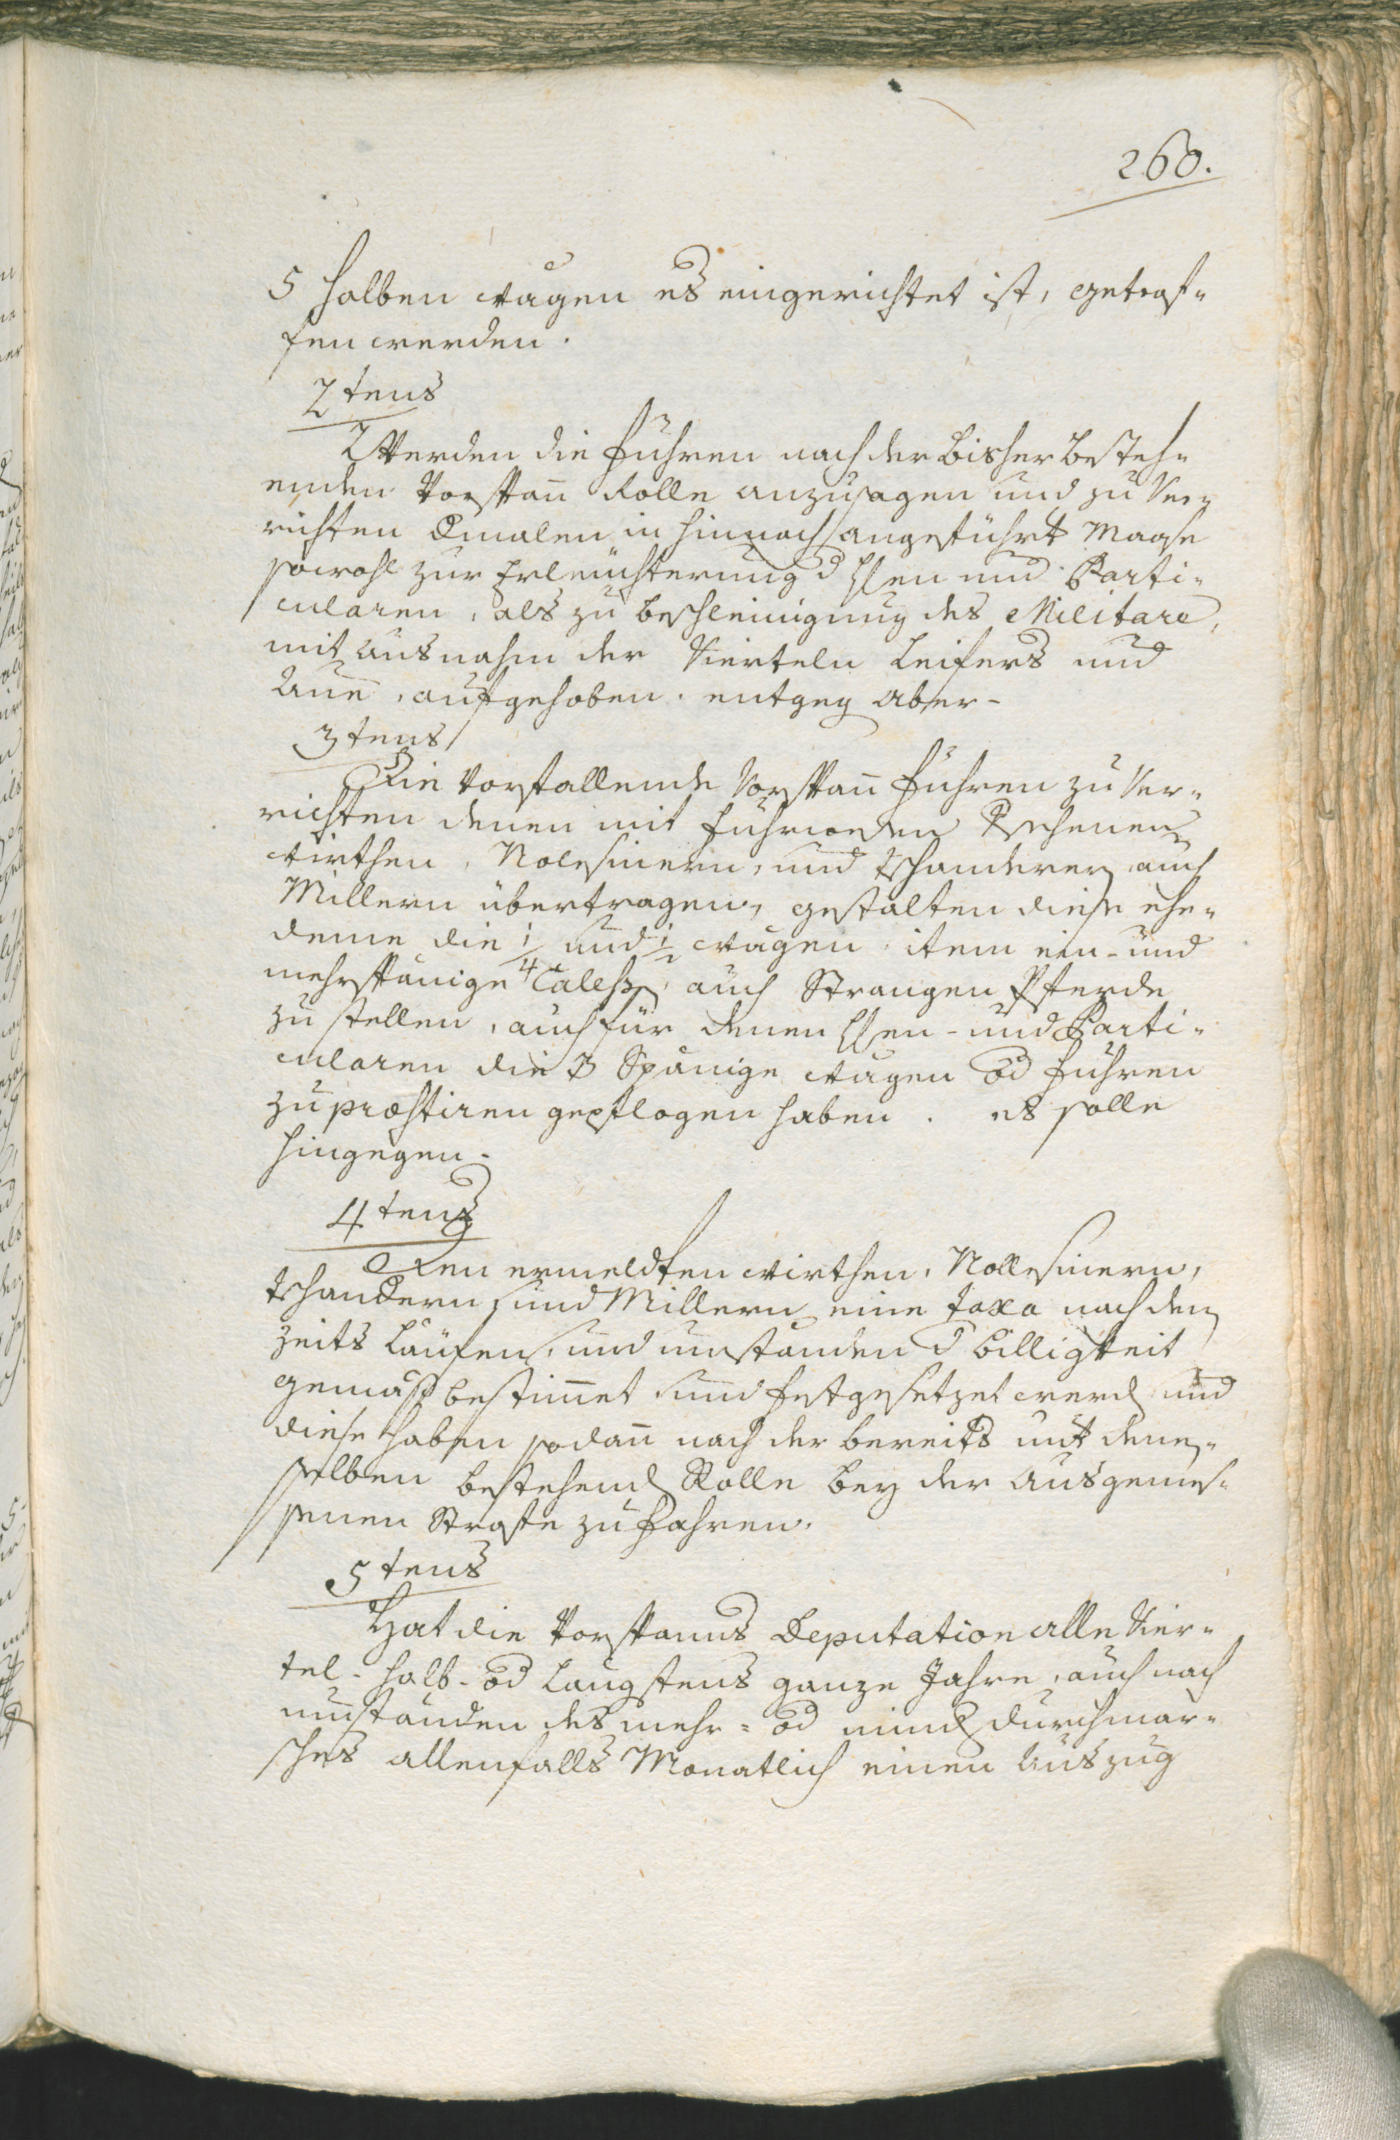 260.
5 halben wägen es eingerichtet ist, getrof-
fen werden.
2tens
Werden die fuhren nach der bisher besteh-
enden Vorspann Rolle anzusagen und zu ver-
richten Dmalen in hinnach angeführt Maase
sowohl zur Erleuchterung d HHen und Parti-
cularen, als zu beschleinigung des Militare,
mit ausnahm der Vierteln Leifers und
Aue, aufgehoben. entgeg aber-
3tens
Die Vorfallende Vorspann fuhren zu ver-
richten denen mit fuhrwesen Versehenen
wirthen, Nolesinern, und Tschanderer auch
Millern übertragen, gestalten diese ehe-
deme die 1/4 und 1/2 wägen, item ein- und
mehrspänige Calesse, auch Strangen Pferde
zu stellen, auch für denen HHen- und Parti-
cularen die 3 Spänige wägen od fuhren
zu præstiren gepflogen haben. es solle
hingegen-
4tens
Den ermeldten wirthen, Nollesinern,
Tschandern und Millern eine taxa nach den
zeits läufen, und umständen d billigkeit
gemäß bestimet und festgesetzet werd und
diese haben sodann nach der bereits mit den-
selben bestehend Rolle bey der ausgemes-
senen Strafe zu fahren.
5tens
Hat die Vorspanns Deputation alle Vier-
tel- halb- od langstens ganze Jahre, auch nach
umständen des mehr- od mind durchmar-
sches allenfalls Monatlich einen auszug